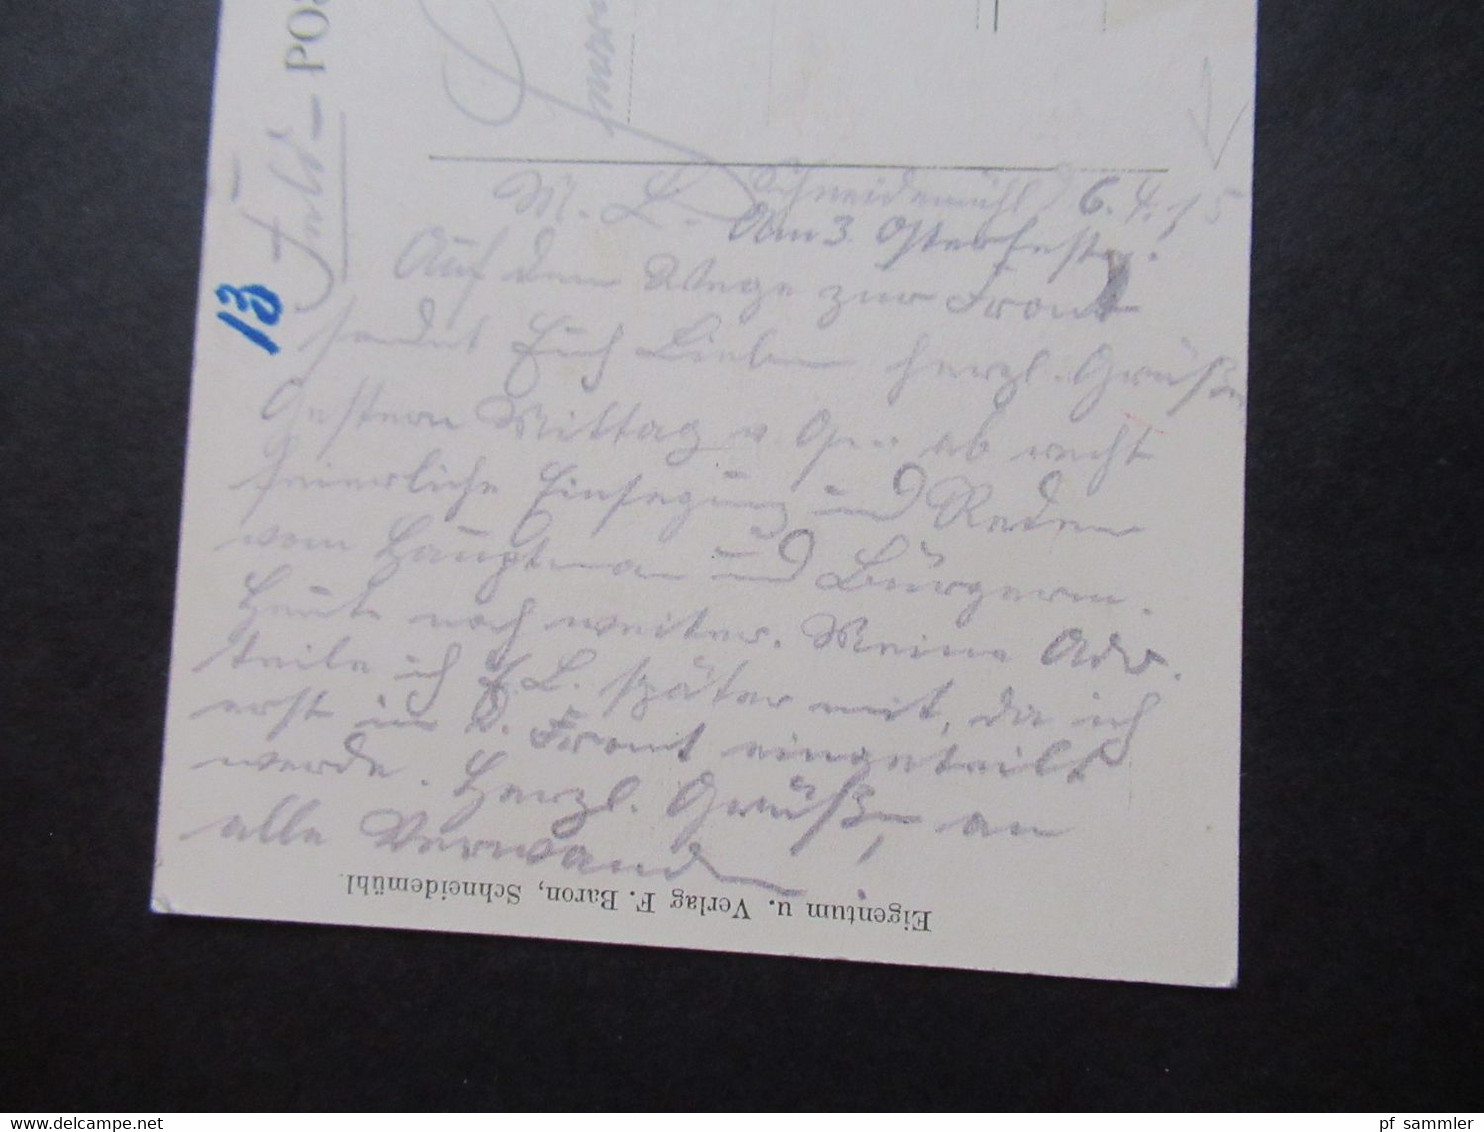 Feld-POS
13
Schneidemühl d. 6.4.15
M. L. Am 3. Osterfest.
Auf dem Wege zur Front
sendet Euch Lieben herzl. Grüße
Gestern Mittag ab recht
feierliche Einsegnung und Reden
vom Hauptman und Bürgerm.
Heute noch weiter. Meine Adr.
teile ich E. L. später mit, da ich
erst in d. Front eingeteilt
werde. Herzl. Grüße an
alle Verwanden.
Eigentum u. Verlag F. Baron, Schneidemühl.
pf sammler
www.delcampe.net